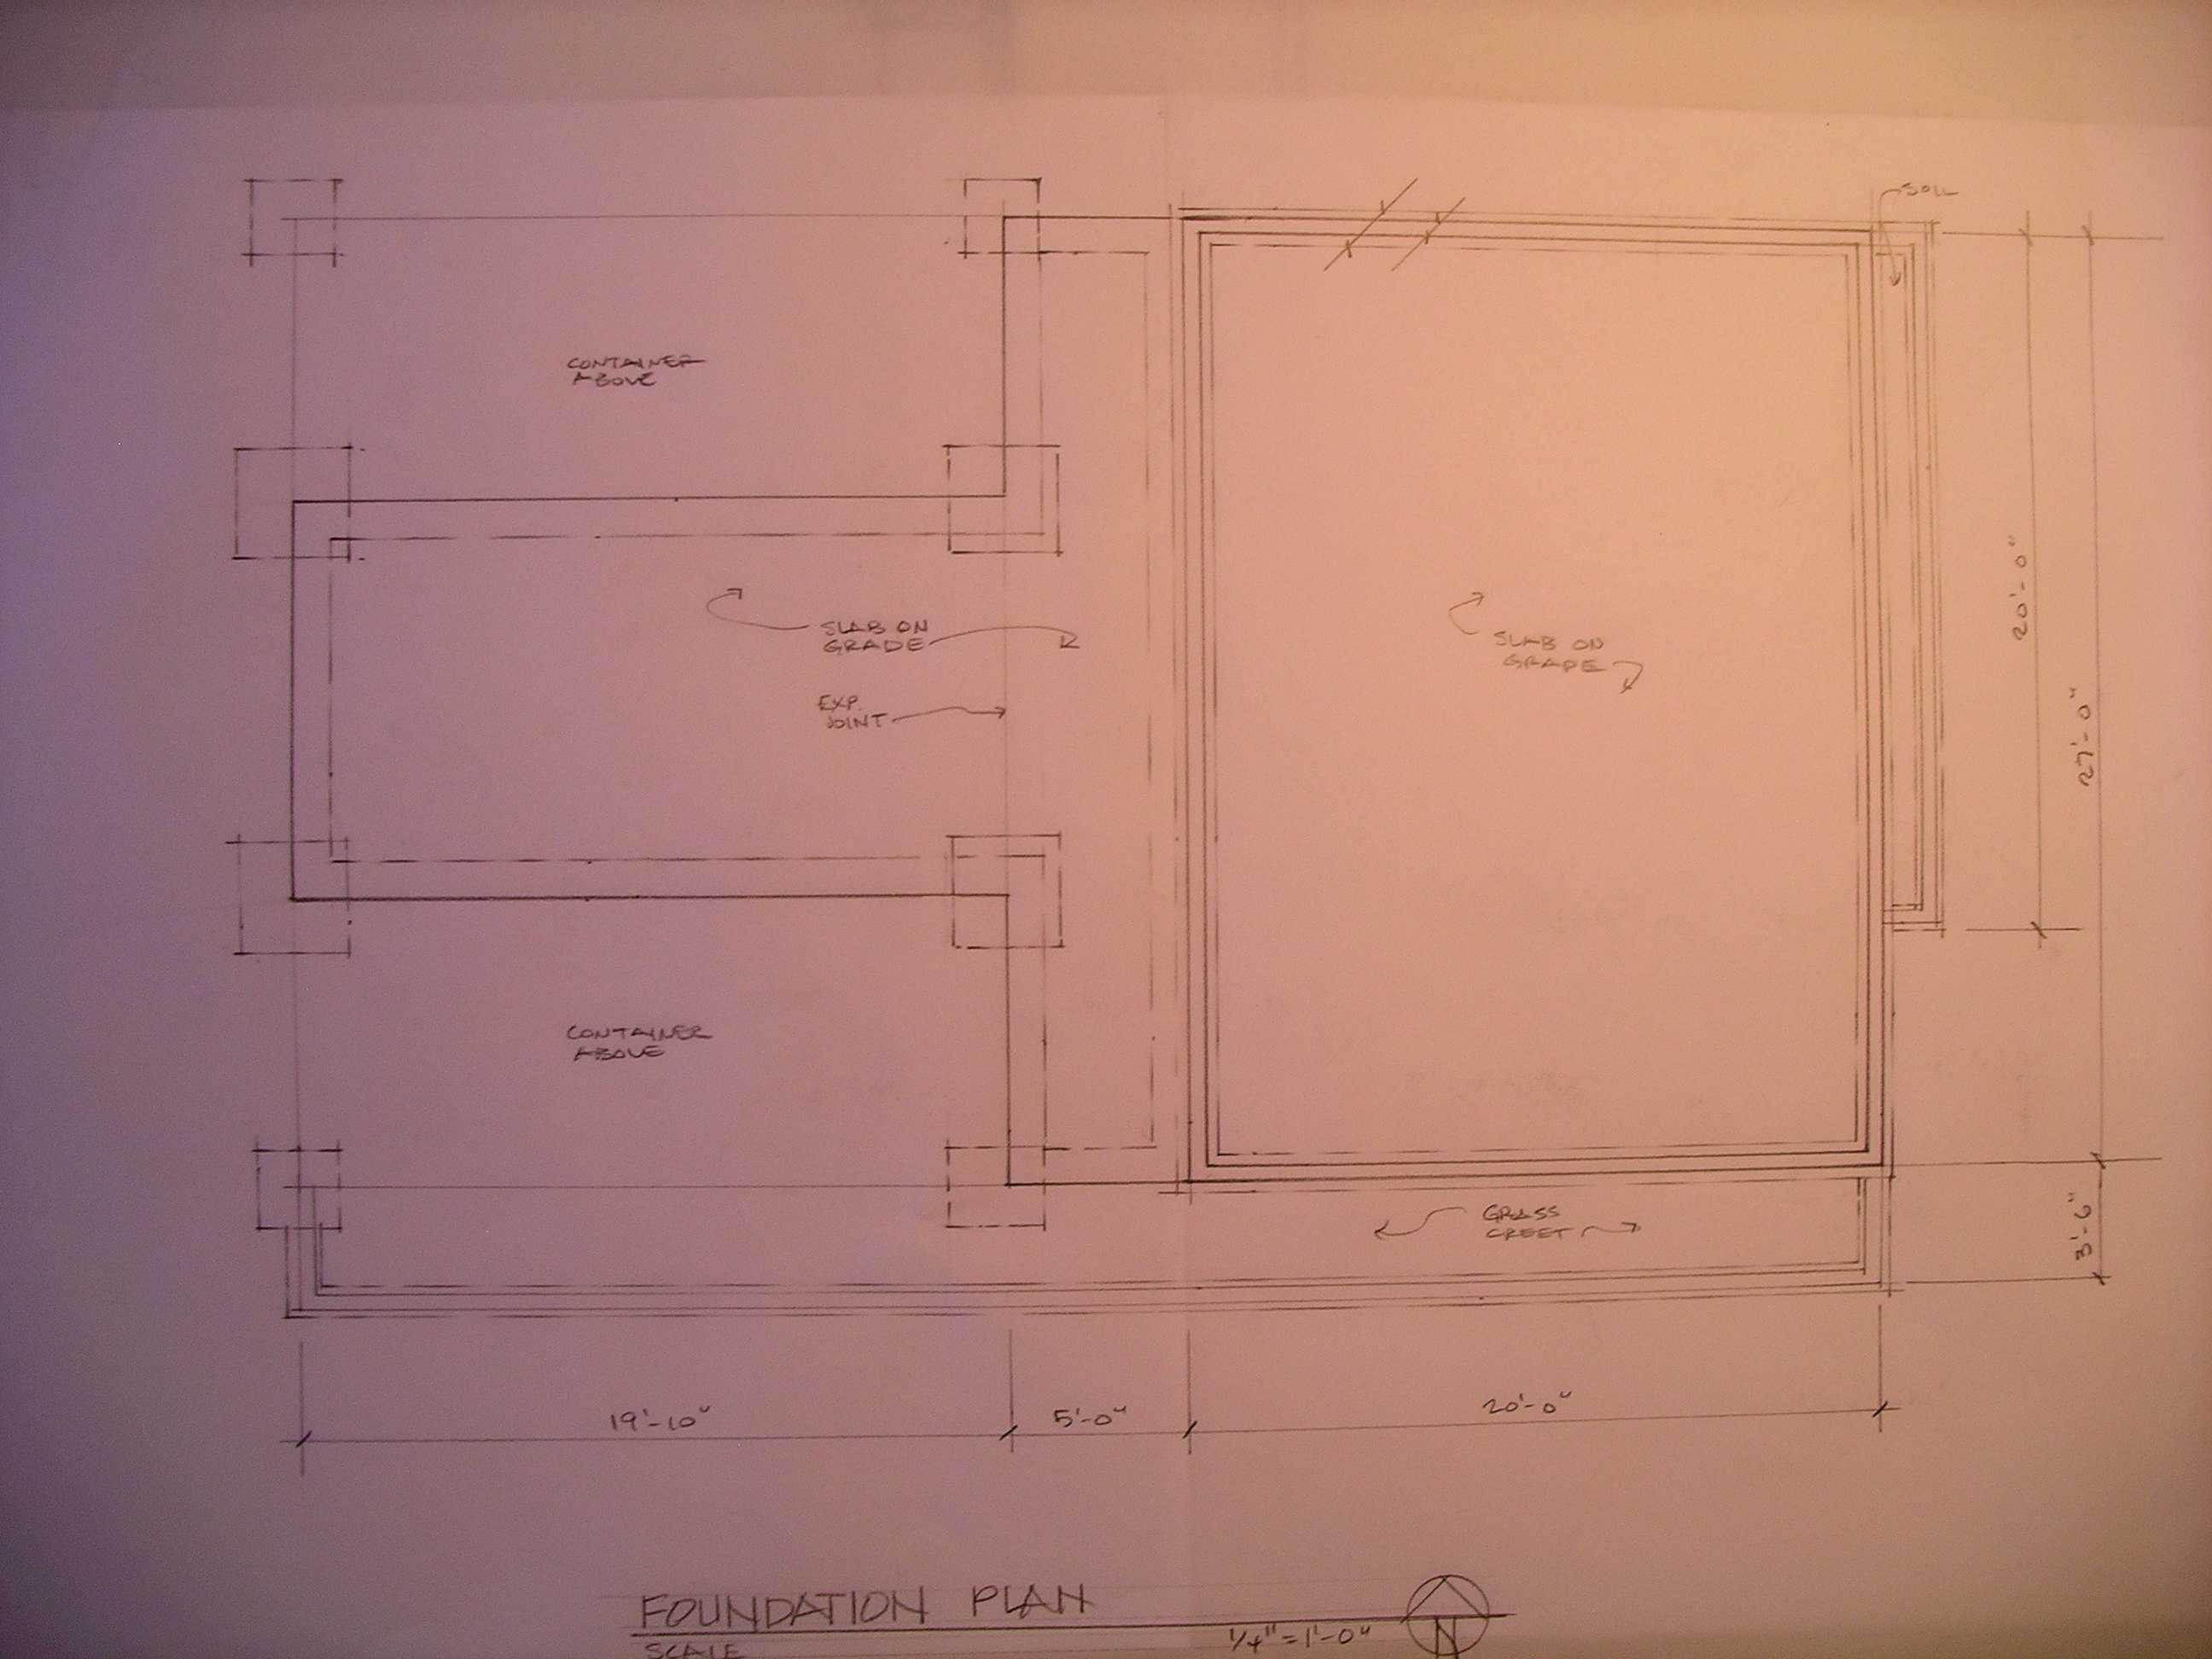 SOIL
CONTAINER
ABOVE
SLAB ON
GRADE
SLAB ON
GRADE
EXP.
JOINT
20'-0"
27'-0"
CONTAINER
ABOVE
GRASS
CREET
3'-6"
19'-10"
5'-0"
20'-0"
FOUNDATION PLAN
SCALE 1/4"=1'-0"
N